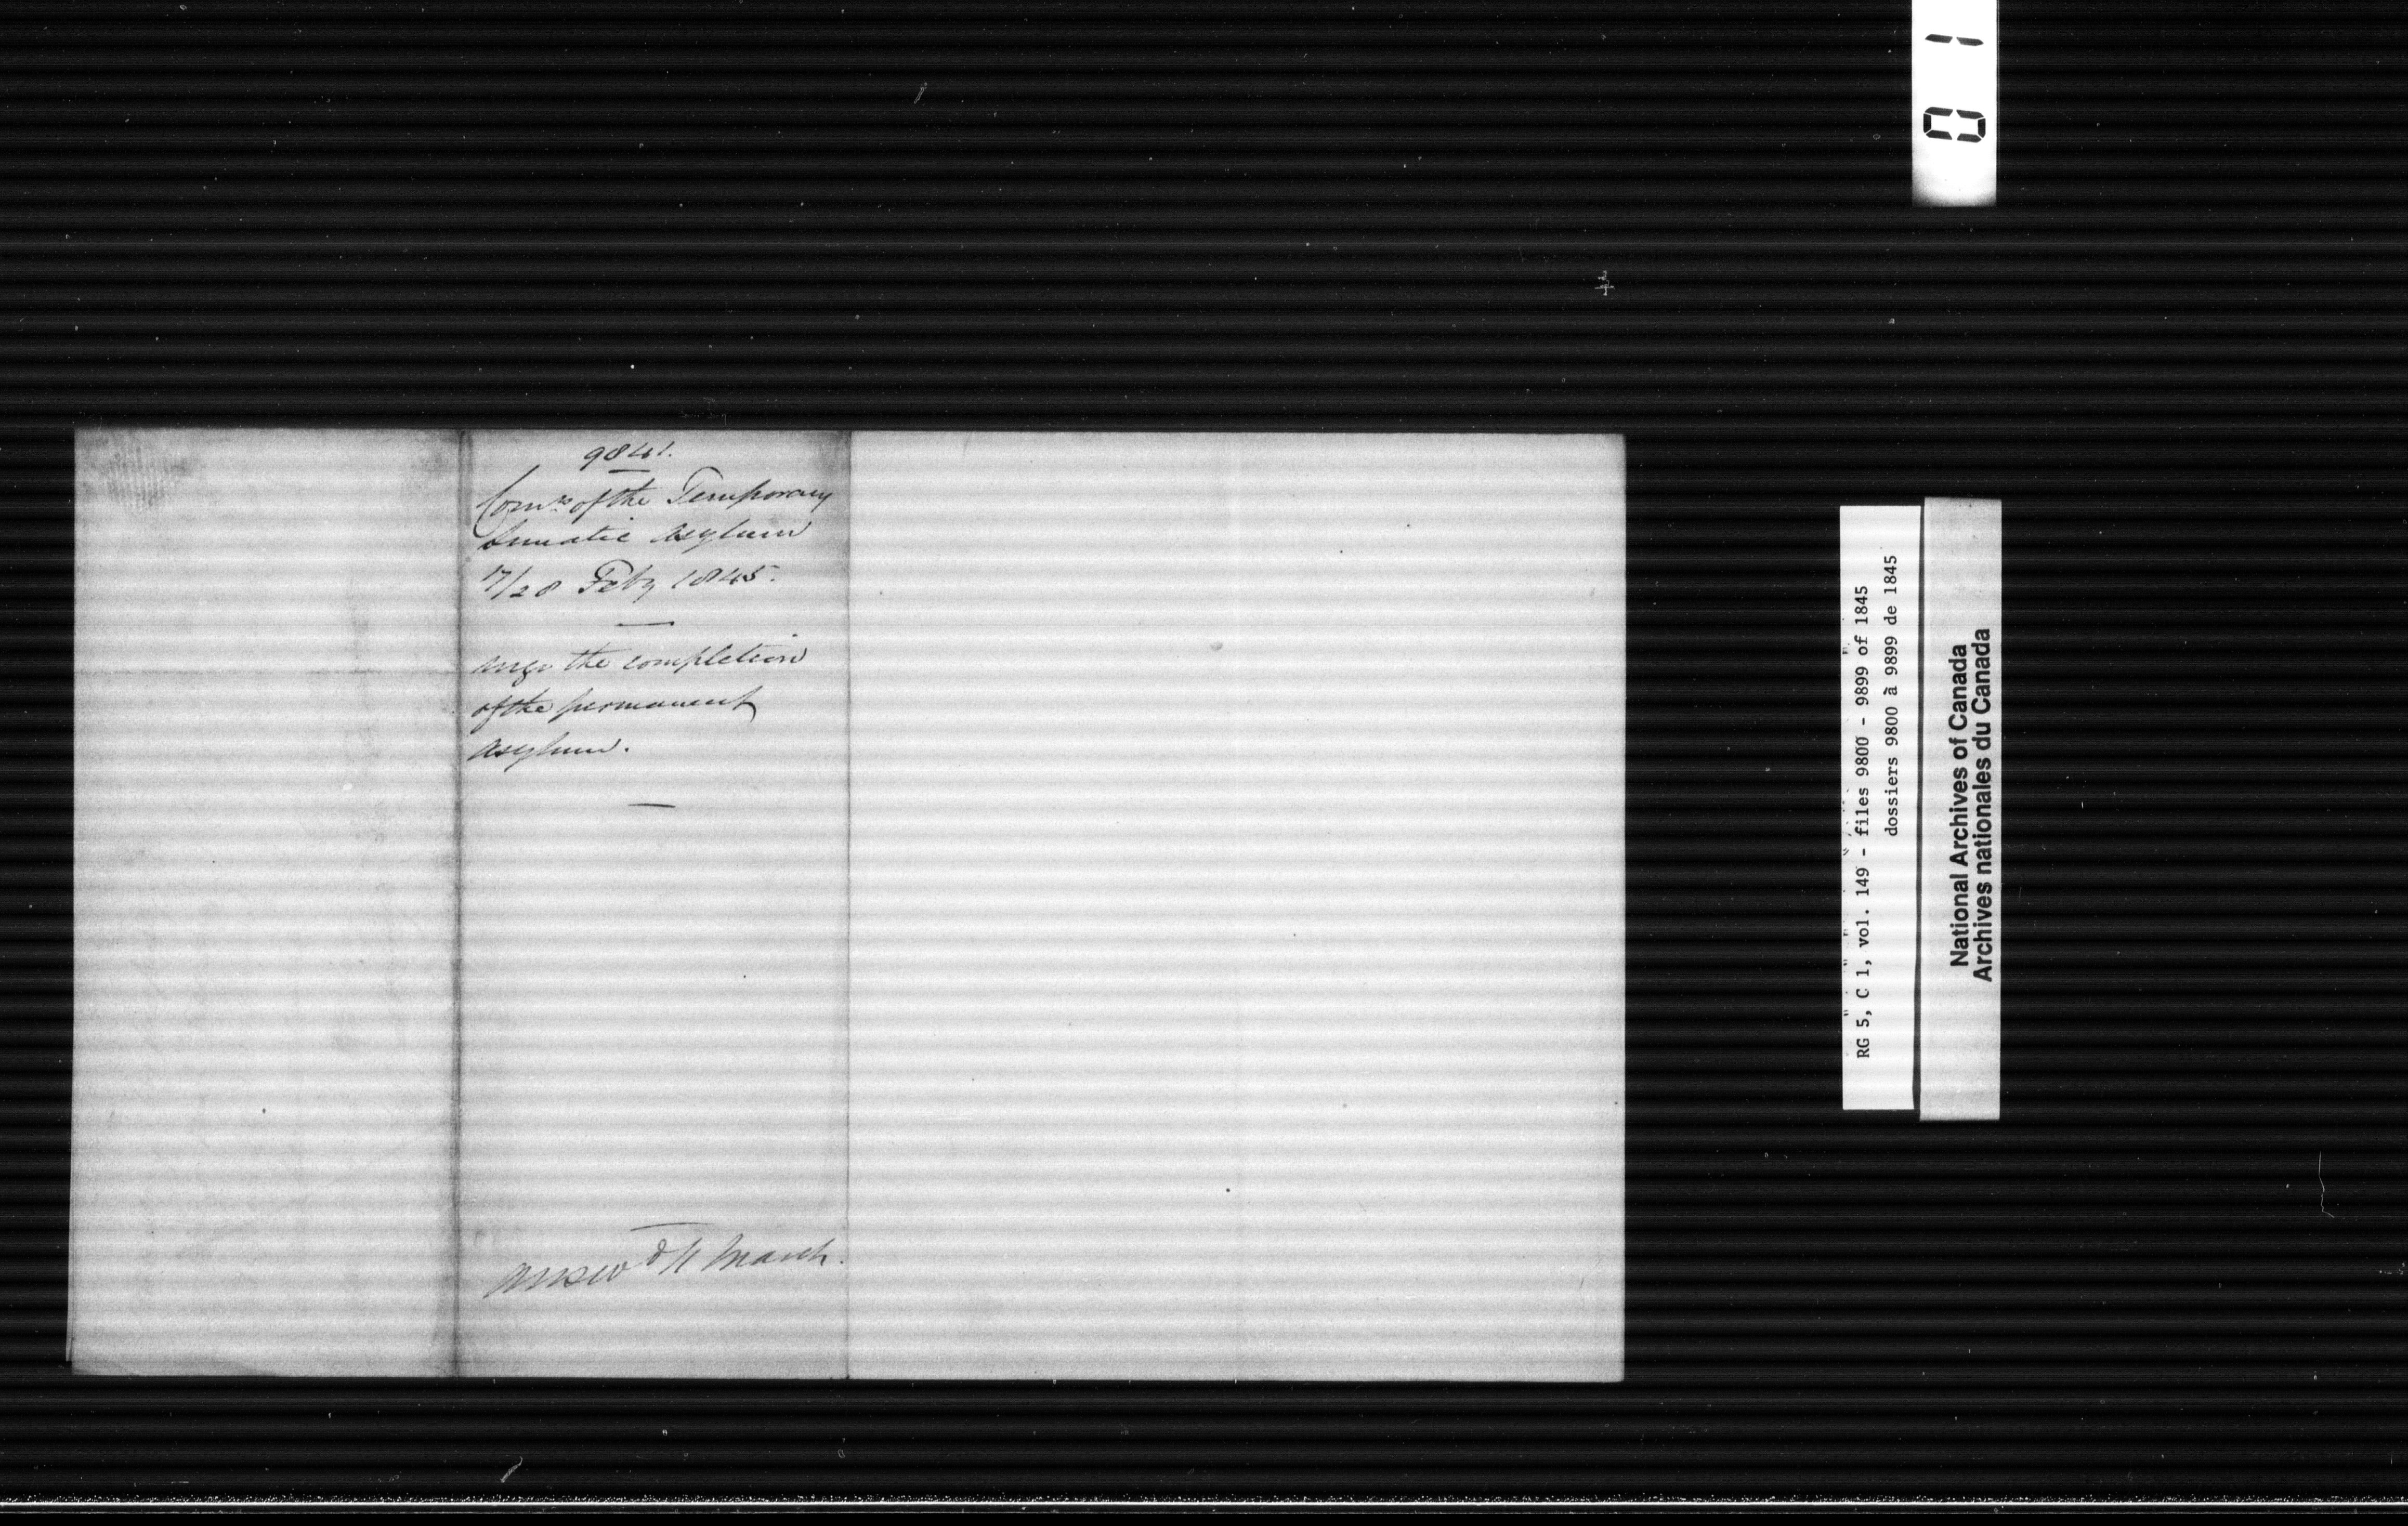 9841.
Comrs of the Temporary
Lunatic Asylum
17/28 Feby 1845.
urge the completion
of the permanent
asylum.
answd 11 March.
RG 5, C 1, vol. 149 - files 9800 - 9899 of 1845
dossiers 9800 à 9899 de 1845
National Archives of Canada
Archives nationales du Canada
01